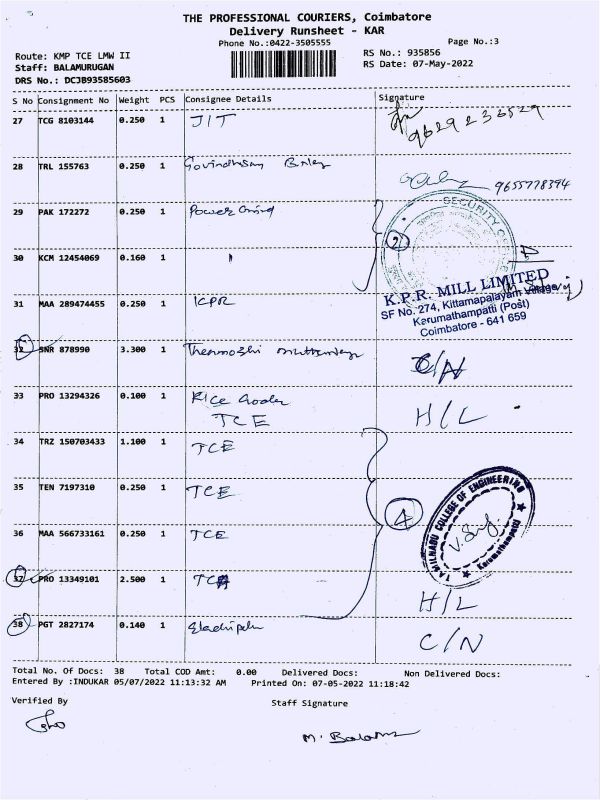 THE PROFESSIONAL COURIERS, Coimbatore
Delivery Runsheet - KAR
Phone No.:0422-3505555
Page No.:3
Route: KMP TCE LMW II
RS No.: 935856
Staff: BALAMURUGAN
RS Date: 07-May-2022
DRS No.: DCJB93585603
S No Consignment No Weight PCS Consignee Details Signature
27 TCG 8103144 0.250 1 JIT 9629236529
28 TRL 155763 0.250 1 9655778394
29 PAK 172272 0.250 1 Power
SECURITY
2
30 KCM 12454069 0.160 1
K.P.R. MILL LIMITED
SF No. 274, Kittamapalayam Village
Karumathampatti (Post)
Coimbatore - 641 659
31 MAA 289474455 0.250 1 KPR
32 SNR 878990 3.300 1 C/N
33 PRO 13294326 0.100 1 Rice
TCE H/L
34 TRZ 150703433 1.100 1 TCE
35 TEN 7197310 0.250 1 TCE
4
TAMILNADU COLLEGE OF ENGINEERING
Karumathampatti
36 MAA 566733161 0.250 1 TCE
37 PRO 13349101 2.500 1 H/L
38 PGT 2827174 0.140 1 C/N
Total No. Of Docs: 38 Total COD Amt: 0.00 Delivered Docs: Non Delivered Docs:
Entered By :INDUKAR 05/07/2022 11:13:32 AM Printed On: 07-05-2022 11:18:42
Verified By
Staff Signature